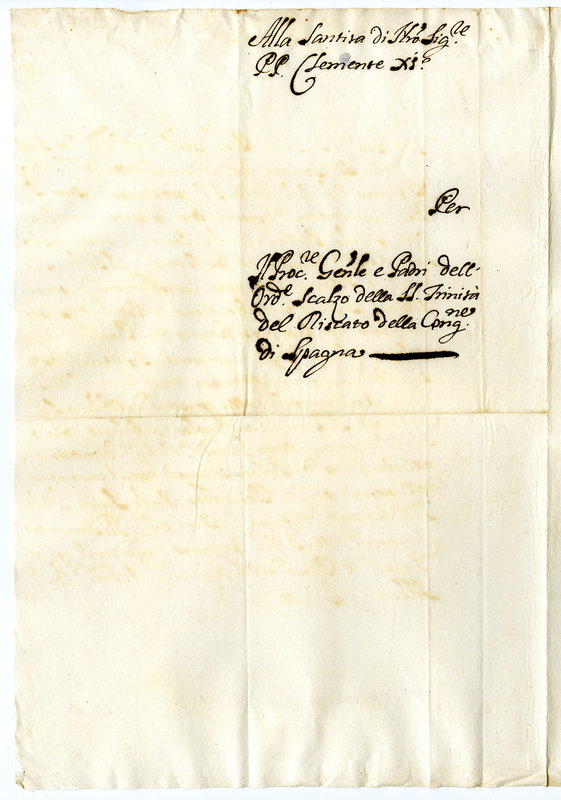 Alla Santita di Nro Sig.re
PP. Clemente XI.o
Per
Il Proc.re Genle e Padri dell'
Ord.e Scalzo della SS. Trinità
del Riscato della Cong.ne
di Spagna